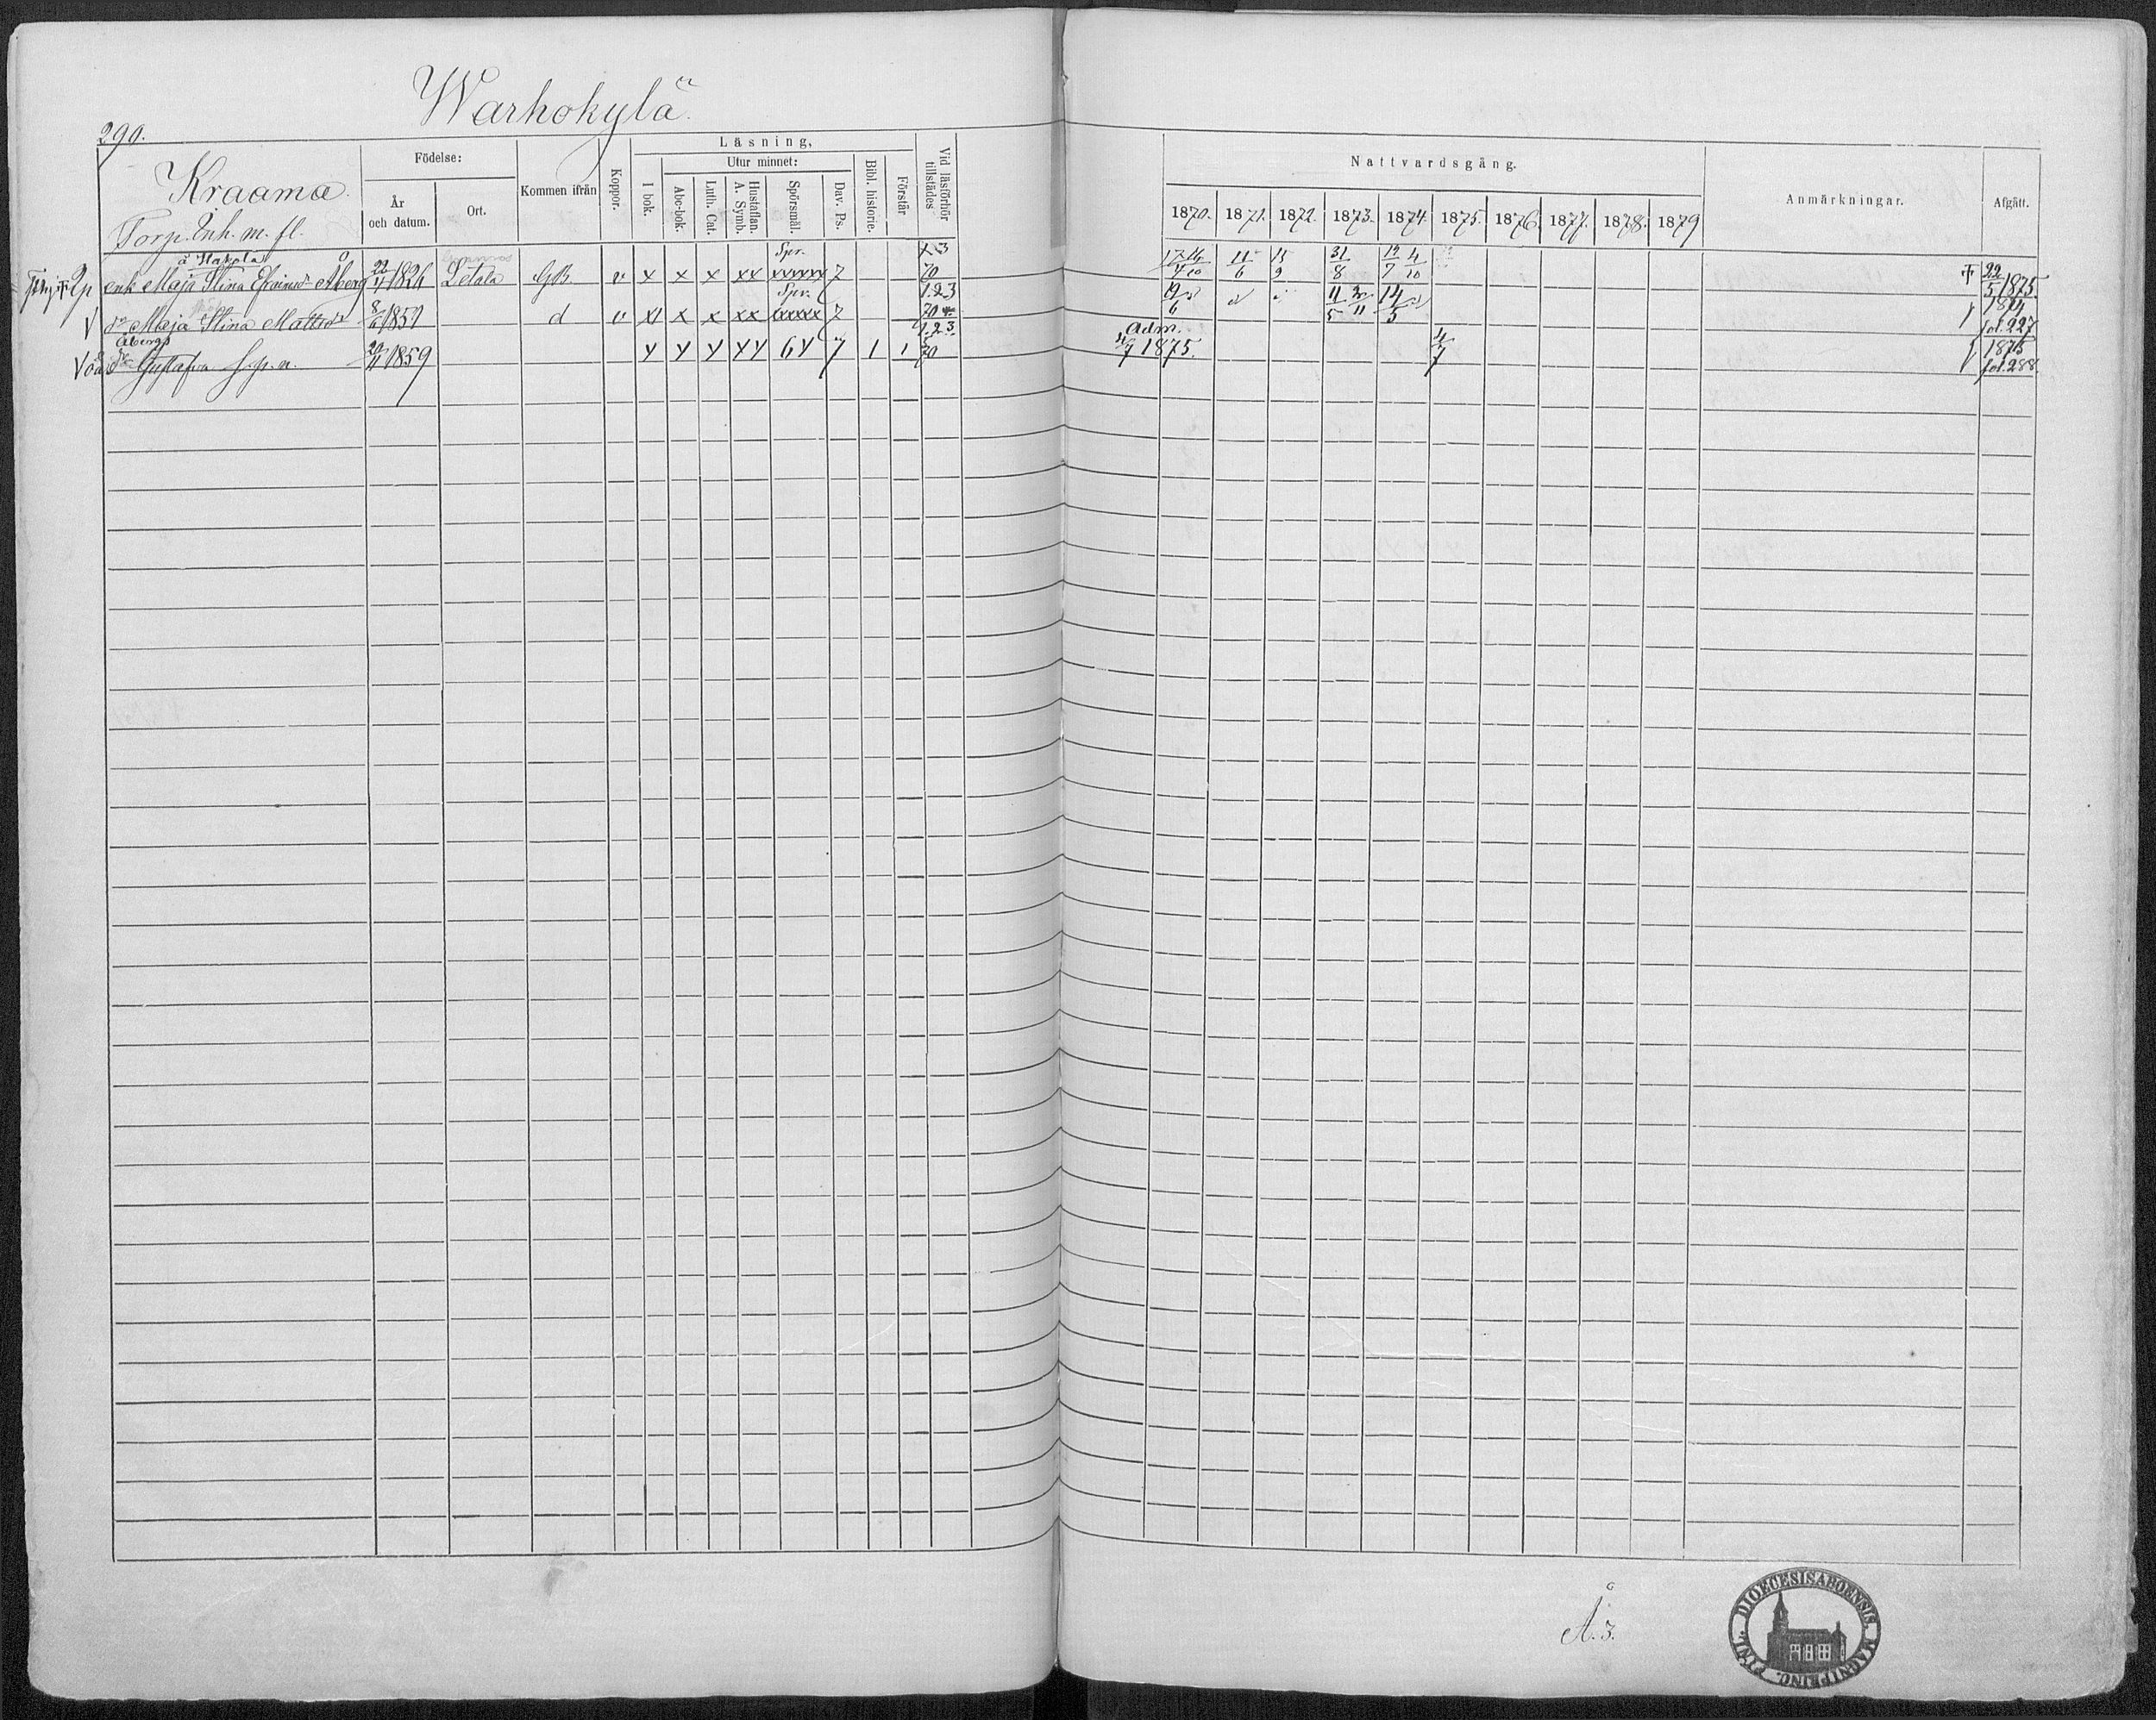 Warhokylä
290.
Kraama
Torp. Inh. m. fl.
Födelse:
År och datum.
Ort.
Kommen ifrån
Koppor.
Läsning,
I bok.
Utur minnet:
Abc-bok.
Luth. Cat.
Hustaflan. A. Symb.
Spörsmål.
Dav. Ps.
Bibl. historie.
Förstår
Vid läsförhör tillstädes
Nattvardsgång.
1870. 1871. 1872. 1873. 1874. 1875. 1876. 1877. 1878. 1879
Anmärkningar.
Afgått.
enk Maja Stina Efraimsdr Åberg 22/11 1826 Letala GB v x x x xx Spr. xxxxxx 7 1.3 70 17/4 16/10 11/6 15/9 31/8 12/7 4/10 22/5 1875.
dr Maja Stina Mattsdr 8/6 1851 d v x x x xx Spr. 7 1.2.3 70 19/6 11/5 14/5 1874 fol. 227
Åbergs
dr Gustafva 1859 6 7 1 1 1.2.3 70 Adm. 4/7 1875. 4/7 1875 fol. 288.
Å.3.
FINL. DIOECESIS ABOENSIS. MAGNI PRINC.